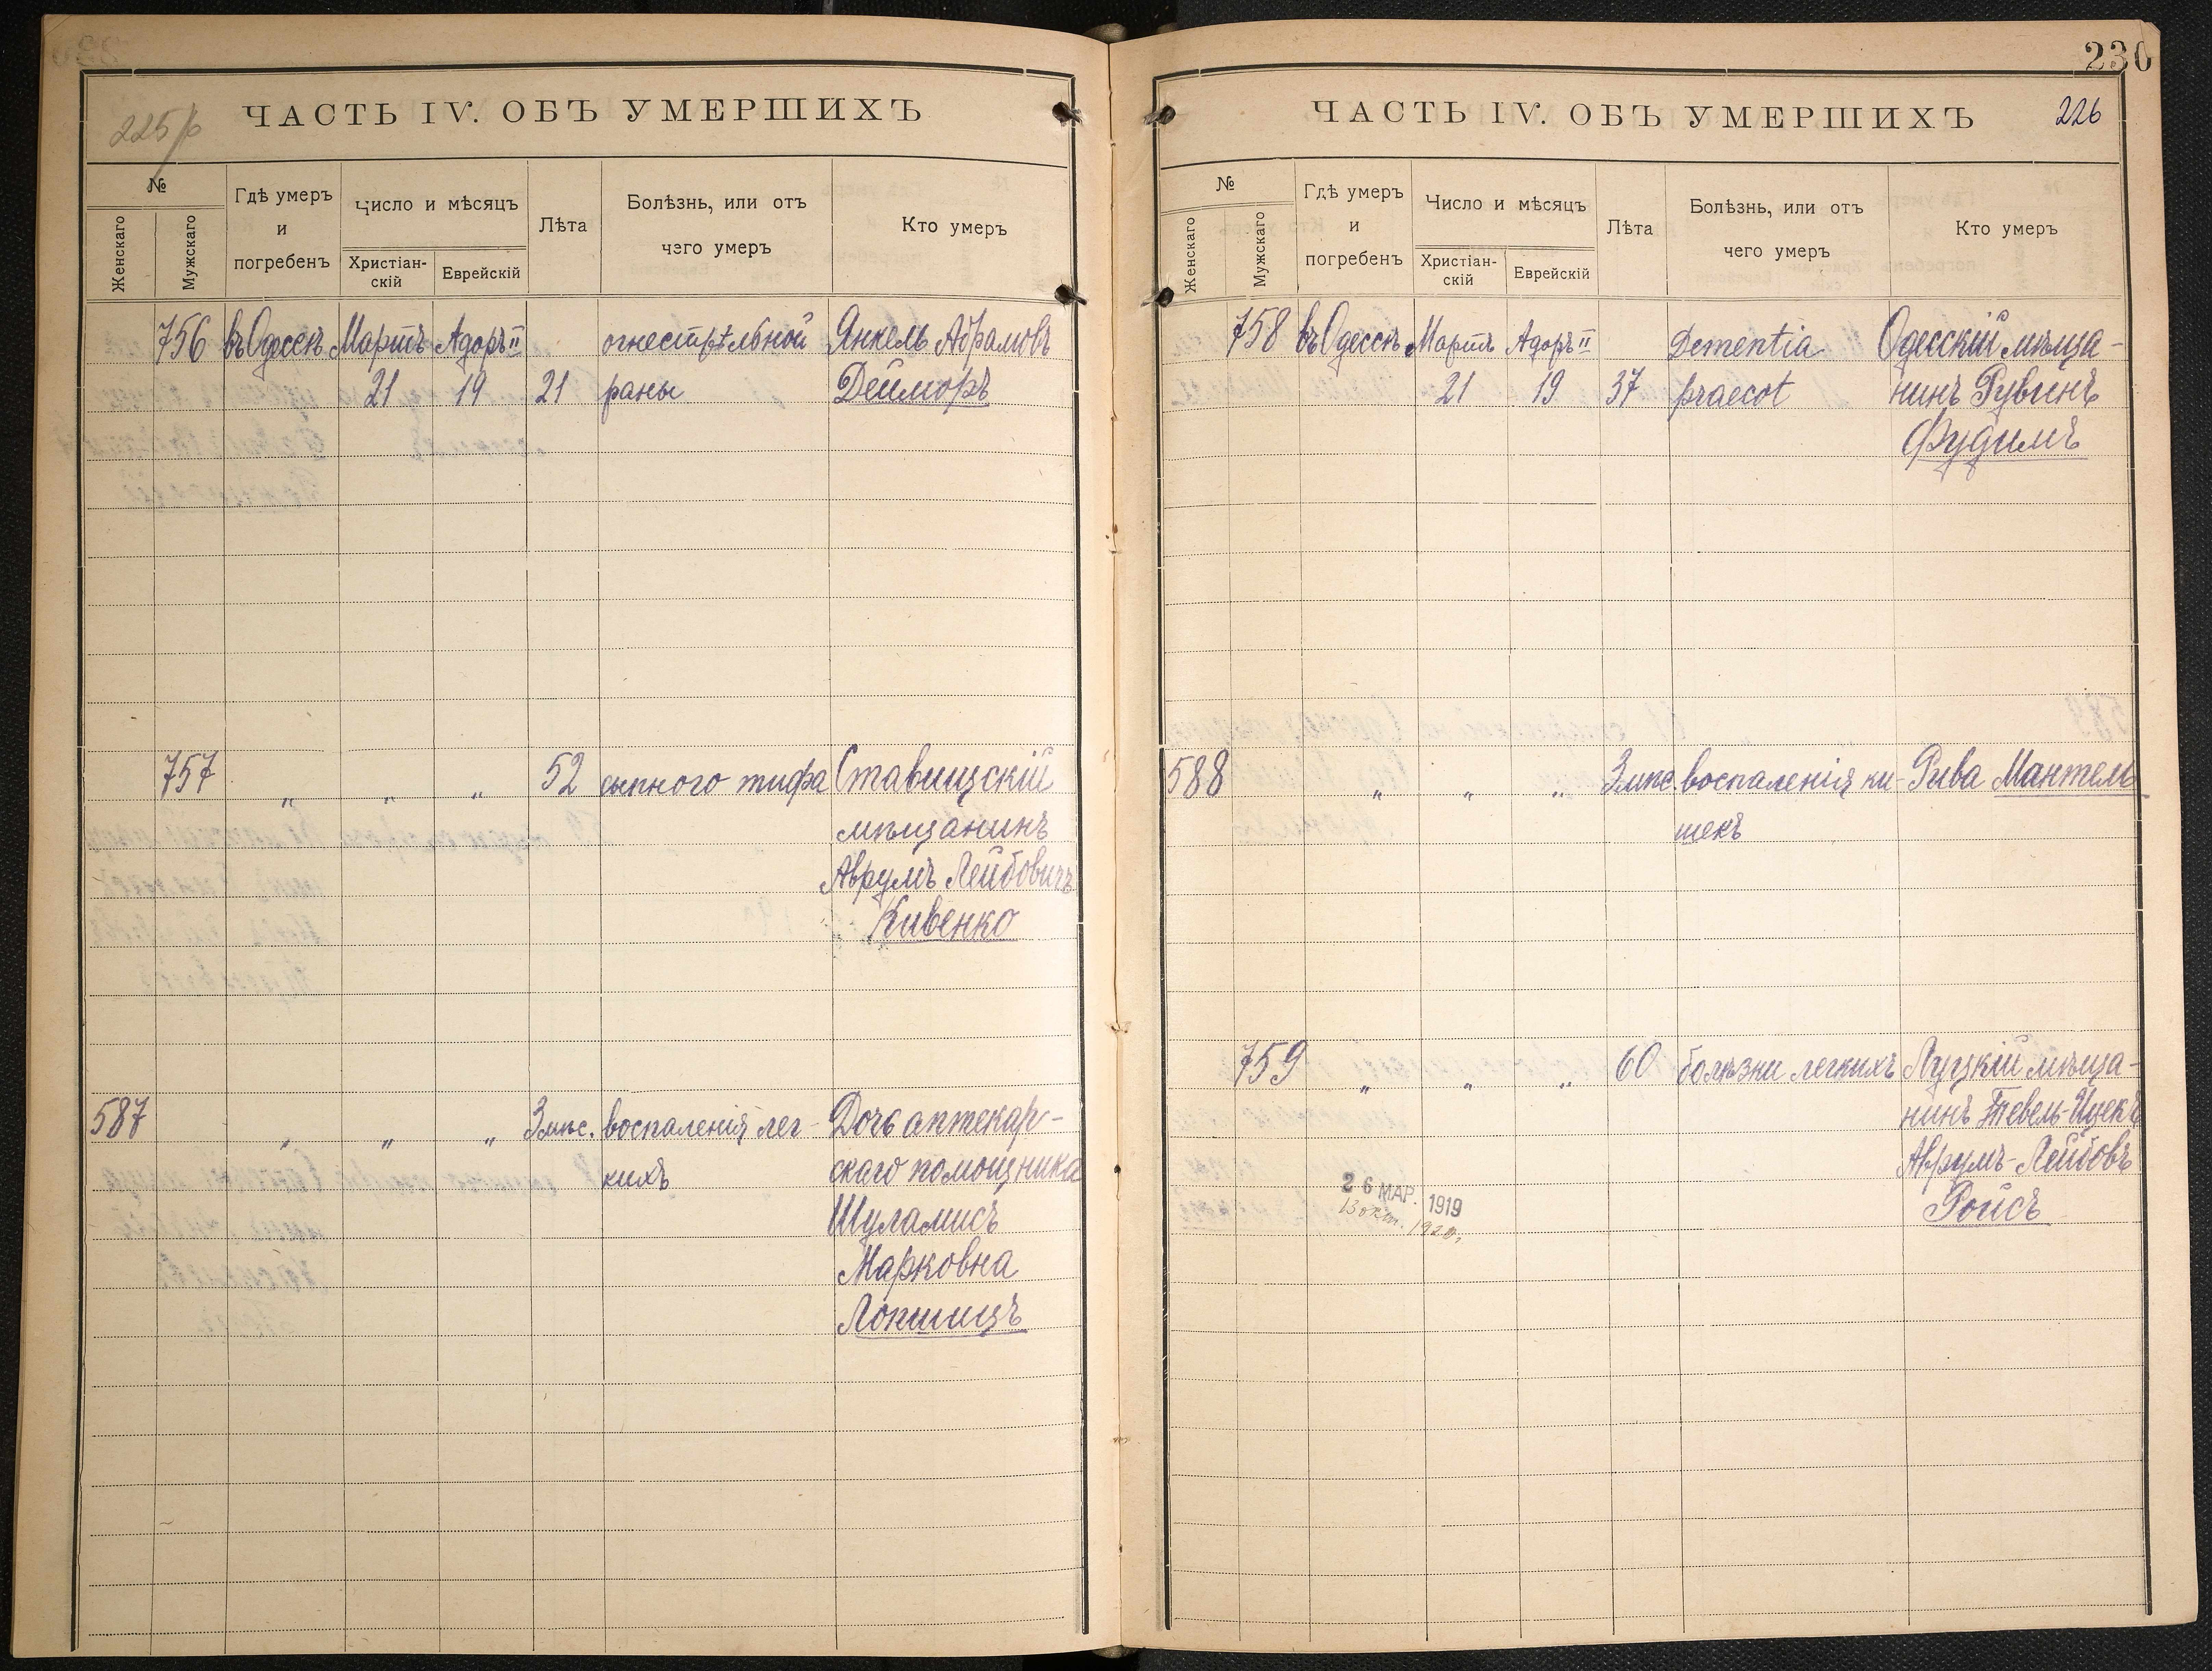 225/р
ЧАСТЬ IV. ОБЪ УМЕРШИХЪ
№
Женскаго
Мужскаго
Гдѣ умеръ
и
погребенъ
Число и мѣсяцъ
Христіан-
скій
Еврейскій
Лѣта
Болѣзнь, или отъ
чего умеръ
Кто умеръ
756 въ Одессѣ Мартъ Адоръ II огнестрѣльной Янкель Абрамовъ
21 19 21 раны Дейморъ
757 „ „ „ 52 сыпного тифа Ставищскій
мѣщанинъ
Аврумъ Лейбовичъ
Кивенко
587 „ „ „ 3 мѣс. воспаленія лег- Дочь аптекар-
кихъ скаго помощника
Шуламись
Марковна
Лопшицъ
230
ЧАСТЬ IV. ОБЪ УМЕРШИХЪ 226
№
Женскаго
Мужскаго
Гдѣ умеръ
и
погребенъ
Число и мѣсяцъ
Христіан-
скій
Еврейскій
Лѣта
Болѣзнь, или отъ
чего умеръ
Кто умеръ
758 въ Одессѣ Мартъ Адоръ II Dementia Одесскій мѣща-
21 19 37 praecot нинъ Рувинъ
Фудимъ
588 „ „ „ 3 мѣс. воспаленія ки- Рива Мантель
шекъ
759 „ „ „ 60 болѣзни легкихъ Луцкій мѣща-
нинъ Тевель-Ицекъ
Аврумъ-Лейбовъ
26 МАР. 1919
13 окт. 1920. Ройсъ